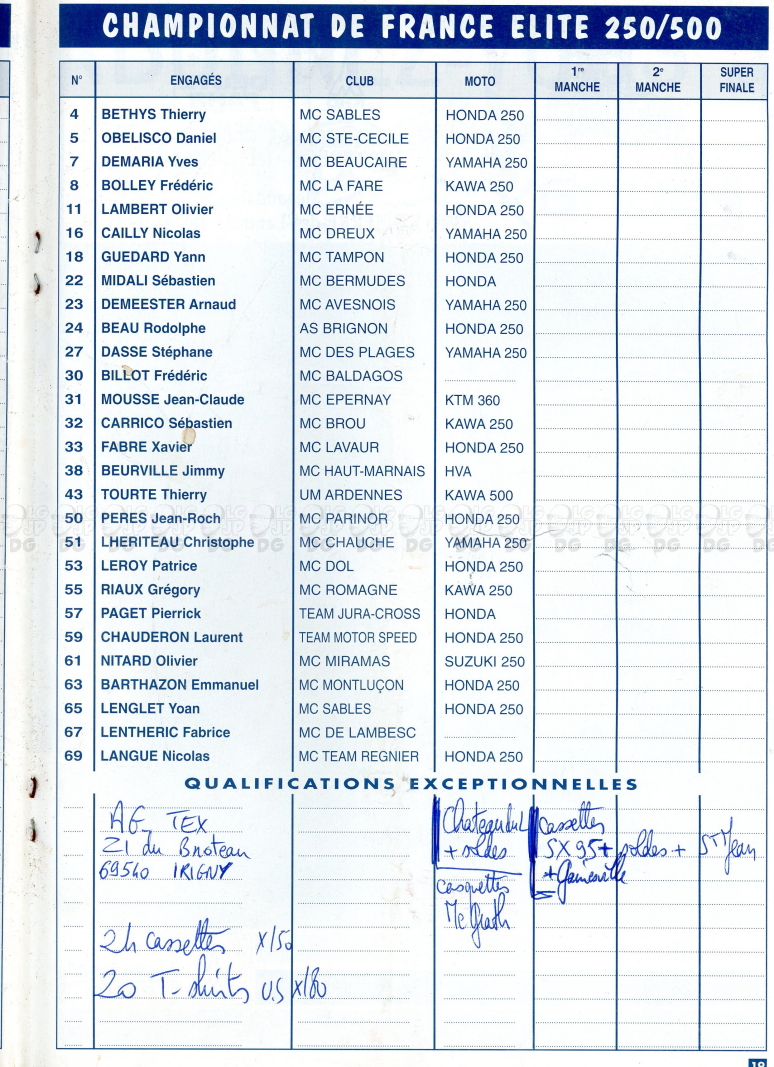 CHAMPIONNAT DE FRANCE ELITE 250/500
N° ENGAGÉS CLUB MOTO 1re MANCHE 2e MANCHE SUPER FINALE
4 BETHYS Thierry MC SABLES HONDA 250
5 OBELISCO Daniel MC STE-CECILE HONDA 250
7 DEMARIA Yves MC BEAUCAIRE YAMAHA 250
8 BOLLEY Frédéric MC LA FARE KAWA 250
11 LAMBERT Olivier MC ERNÉE HONDA 250
16 CAILLY Nicolas MC DREUX YAMAHA 250
18 GUEDARD Yann MC TAMPON HONDA 250
22 MIDALI Sébastien MC BERMUDES HONDA
23 DEMEESTER Arnaud MC AVESNOIS YAMAHA 250
24 BEAU Rodolphe AS BRIGNON HONDA 250
27 DASSE Stéphane MC DES PLAGES YAMAHA 250
30 BILLOT Frédéric MC BALDAGOS
31 MOUSSE Jean-Claude MC EPERNAY KTM 360
32 CARRICO Sébastien MC BROU KAWA 250
33 FABRE Xavier MC LAVAUR HONDA 250
38 BEURVILLE Jimmy MC HAUT-MARNAIS HVA
43 TOURTE Thierry UM ARDENNES KAWA 500
50 PERES Jean-Roch MC PARINOR HONDA 250
51 LHERITEAU Christophe MC CHAUCHE YAMAHA 250
53 LEROY Patrice MC DOL HONDA 250
55 RIAUX Grégory MC ROMAGNE KAWA 250
57 PAGET Pierrick TEAM JURA-CROSS HONDA
59 CHAUDERON Laurent TEAM MOTOR SPEED HONDA 250
61 NITARD Olivier MC MIRAMAS SUZUKI 250
63 BARTHAZON Emmanuel MC MONTLUÇON HONDA 250
65 LENGLET Yoan MC SABLES HONDA 250
67 LENTHERIC Fabrice MC DE LAMBESC
69 LANGUE Nicolas MC TEAM REGNIER HONDA 250
QUALIFICATIONS EXCEPTIONNELLES
TEX
ZI du Broteau
69540 IRIGNY
24 cassettes X/50
20 T-shirts U.S X/80
+ soldes
casquettes
Mc Grath
Cassettes
SX 95 + soldes + ST Jean
+ Gainesville
19